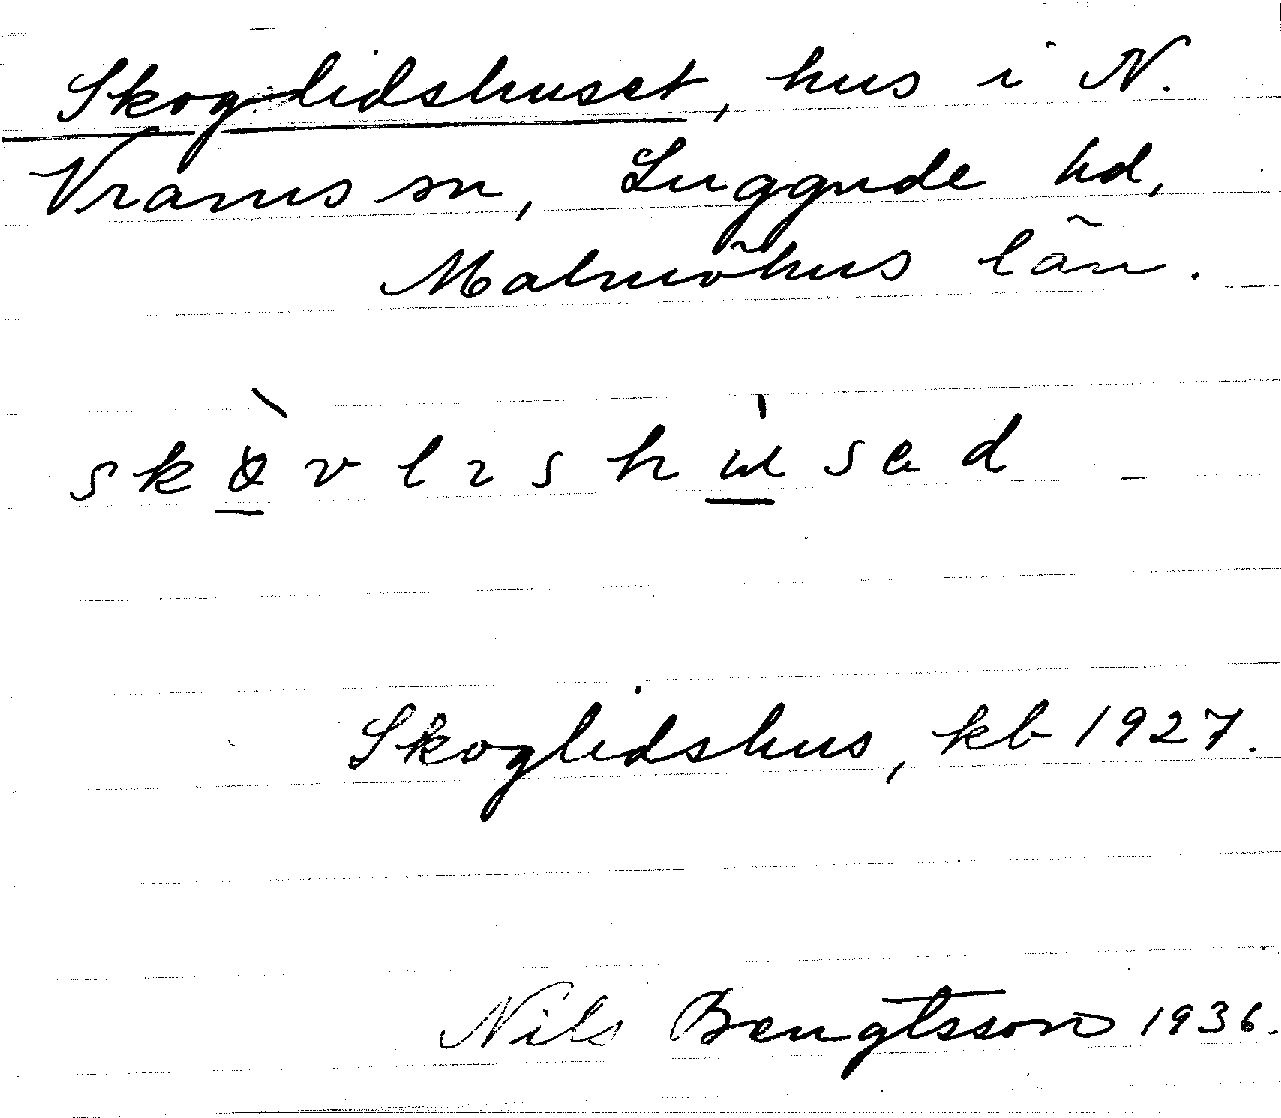 Skoglidshuset, hus i N.
Vrams sn, Luggude hd,
Malmöhus län.
skòvlıshùsed
Skoglidshus, kb 1927.
Nils Bengtsson 1936.